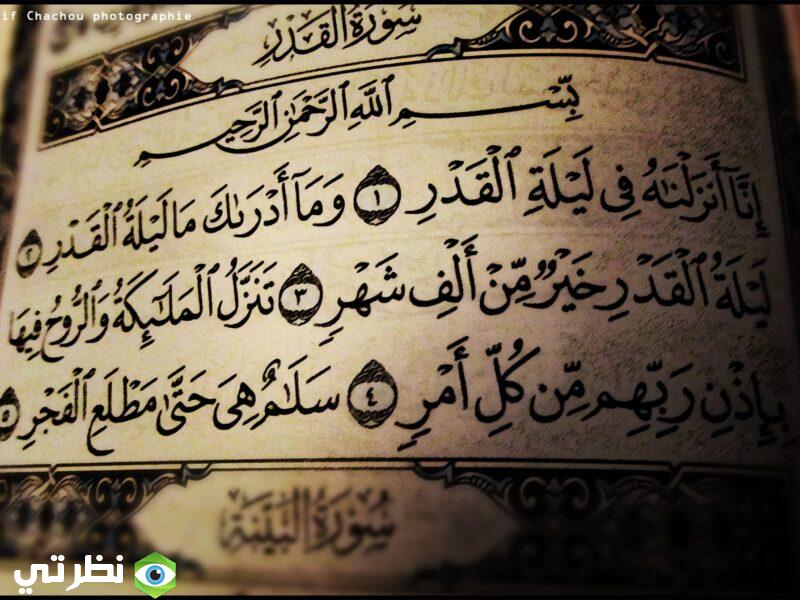 if Chachou photographie
سُورَةُ القَدْرِ
بِّسْمِ ٱللَّهِ ٱلرَّحْمَٰنِ ٱلرَّحِيمِ
إِنَّآ أَنزَلْنَٰهُ فِى لَيْلَةِ ٱلْقَدْرِ ١ وَمَآ أَدْرَىٰكَ مَا لَيْلَةُ ٱلْقَدْرِ ٢
لَيْلَةُ ٱلْقَدْرِ خَيْرٌ مِّنْ أَلْفِ شَهْرٍ ٣ تَنَزَّلُ ٱلْمَلَٰٓئِكَةُ وَٱلرُّوحُ فِيهَا
بِإِذْنِ رَبِّهِم مِّن كُلِّ أَمْرٍ ٤ سَلَٰمٌ هِىَ حَتَّىٰ مَطْلَعِ ٱلْفَجْرِ ٥
سُورَةُ البَيِّنَةِ
نظرتي